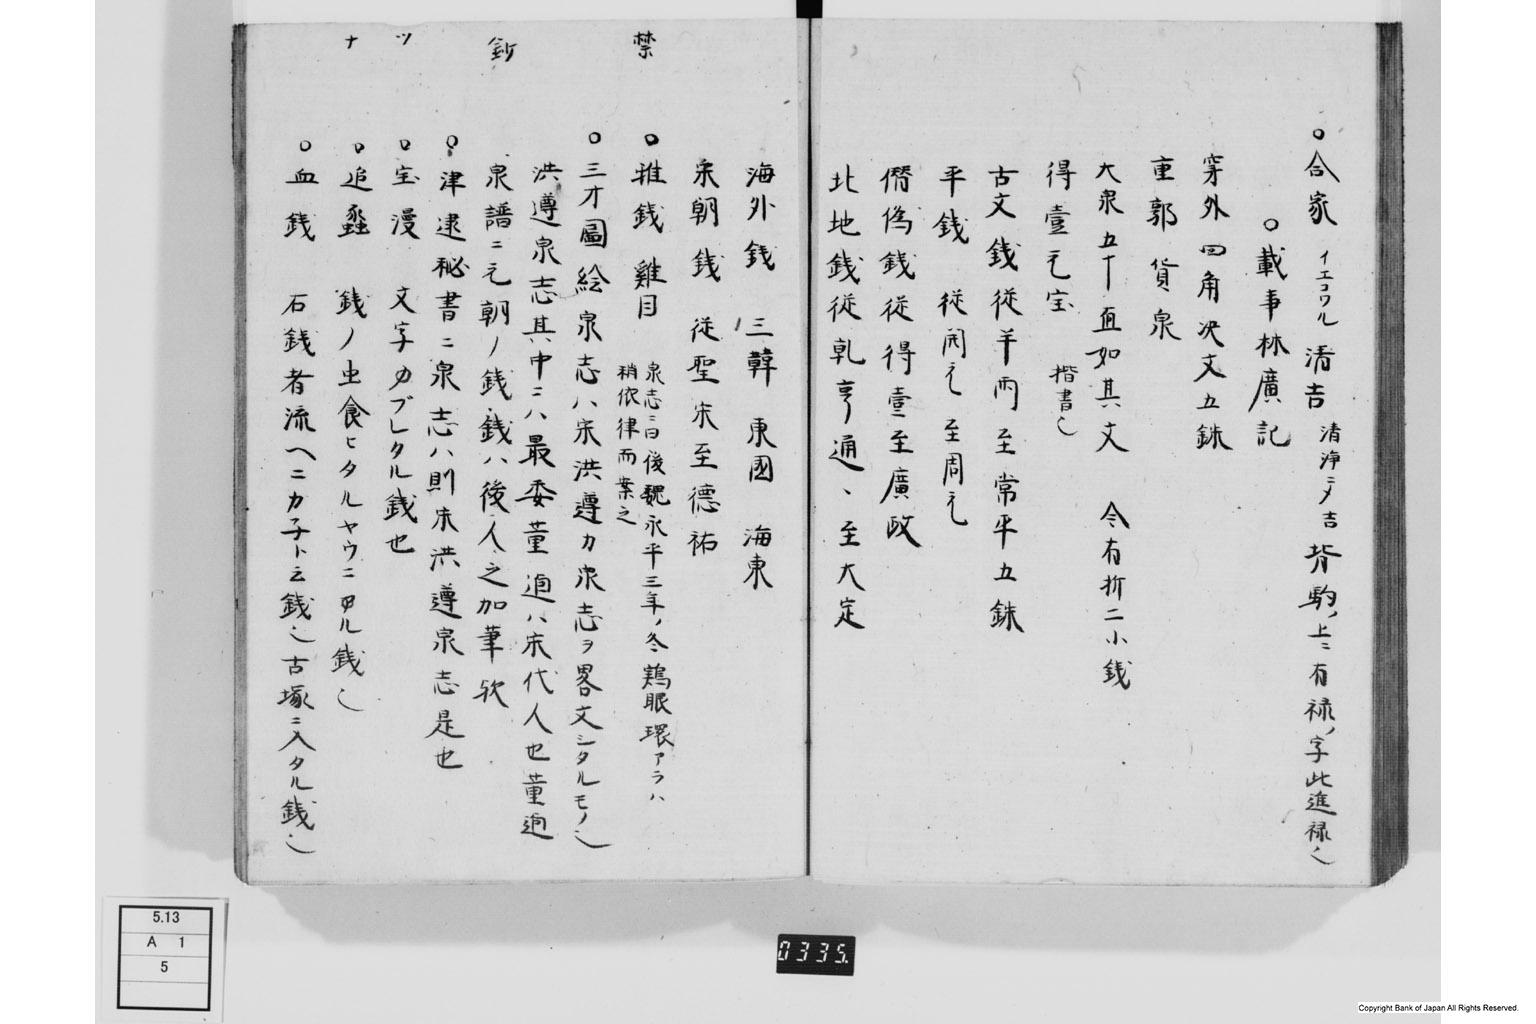 ○合家 イエコワル 清吉 清浄ニメ吉 背駒ノ上ニ有禄ノ字此進禄也
○載事林廣記
穿外四角决文五銖
重郭貨泉
大泉五十直如其文 今有折二小銭
得壹元宝 楷書也
古文銭従半両至常平五銖
平銭 従開元至周元
僭偽銭従得壹至廣政
北地銭従乹亨通、至大定
海外銭 三韓 東國 海東
宋朝銭 従聖宋至德祐
禁
○推銭 雞目 泉志ニ曰後魏永平三年ノ冬鶏眼環アラハ
稍依律而禁之
○三才圖絵泉志ハ宋洪遵カ泉志ヲ畧文シタルモノ也
洪遵泉志其中ニハ最委董逌ハ宋代人也董逌
鈔
泉譜ニ元朝ノ銭銭ハ後人之加筆欤
○津逮秘書ニ泉志ハ則宋洪遵泉志是也
ツ
○宝漫 文字カブレタル銭也
ナ
○追蟸 銭ノ虫食ヒタルヤウニ[ナ]ル銭也
○血銭 石銭者流ヘニカ子ト云銭也古塚ニ入タル銭也
5.13
A 1
5
0335.
Copyright Bank of Japan All Rights Reserved.